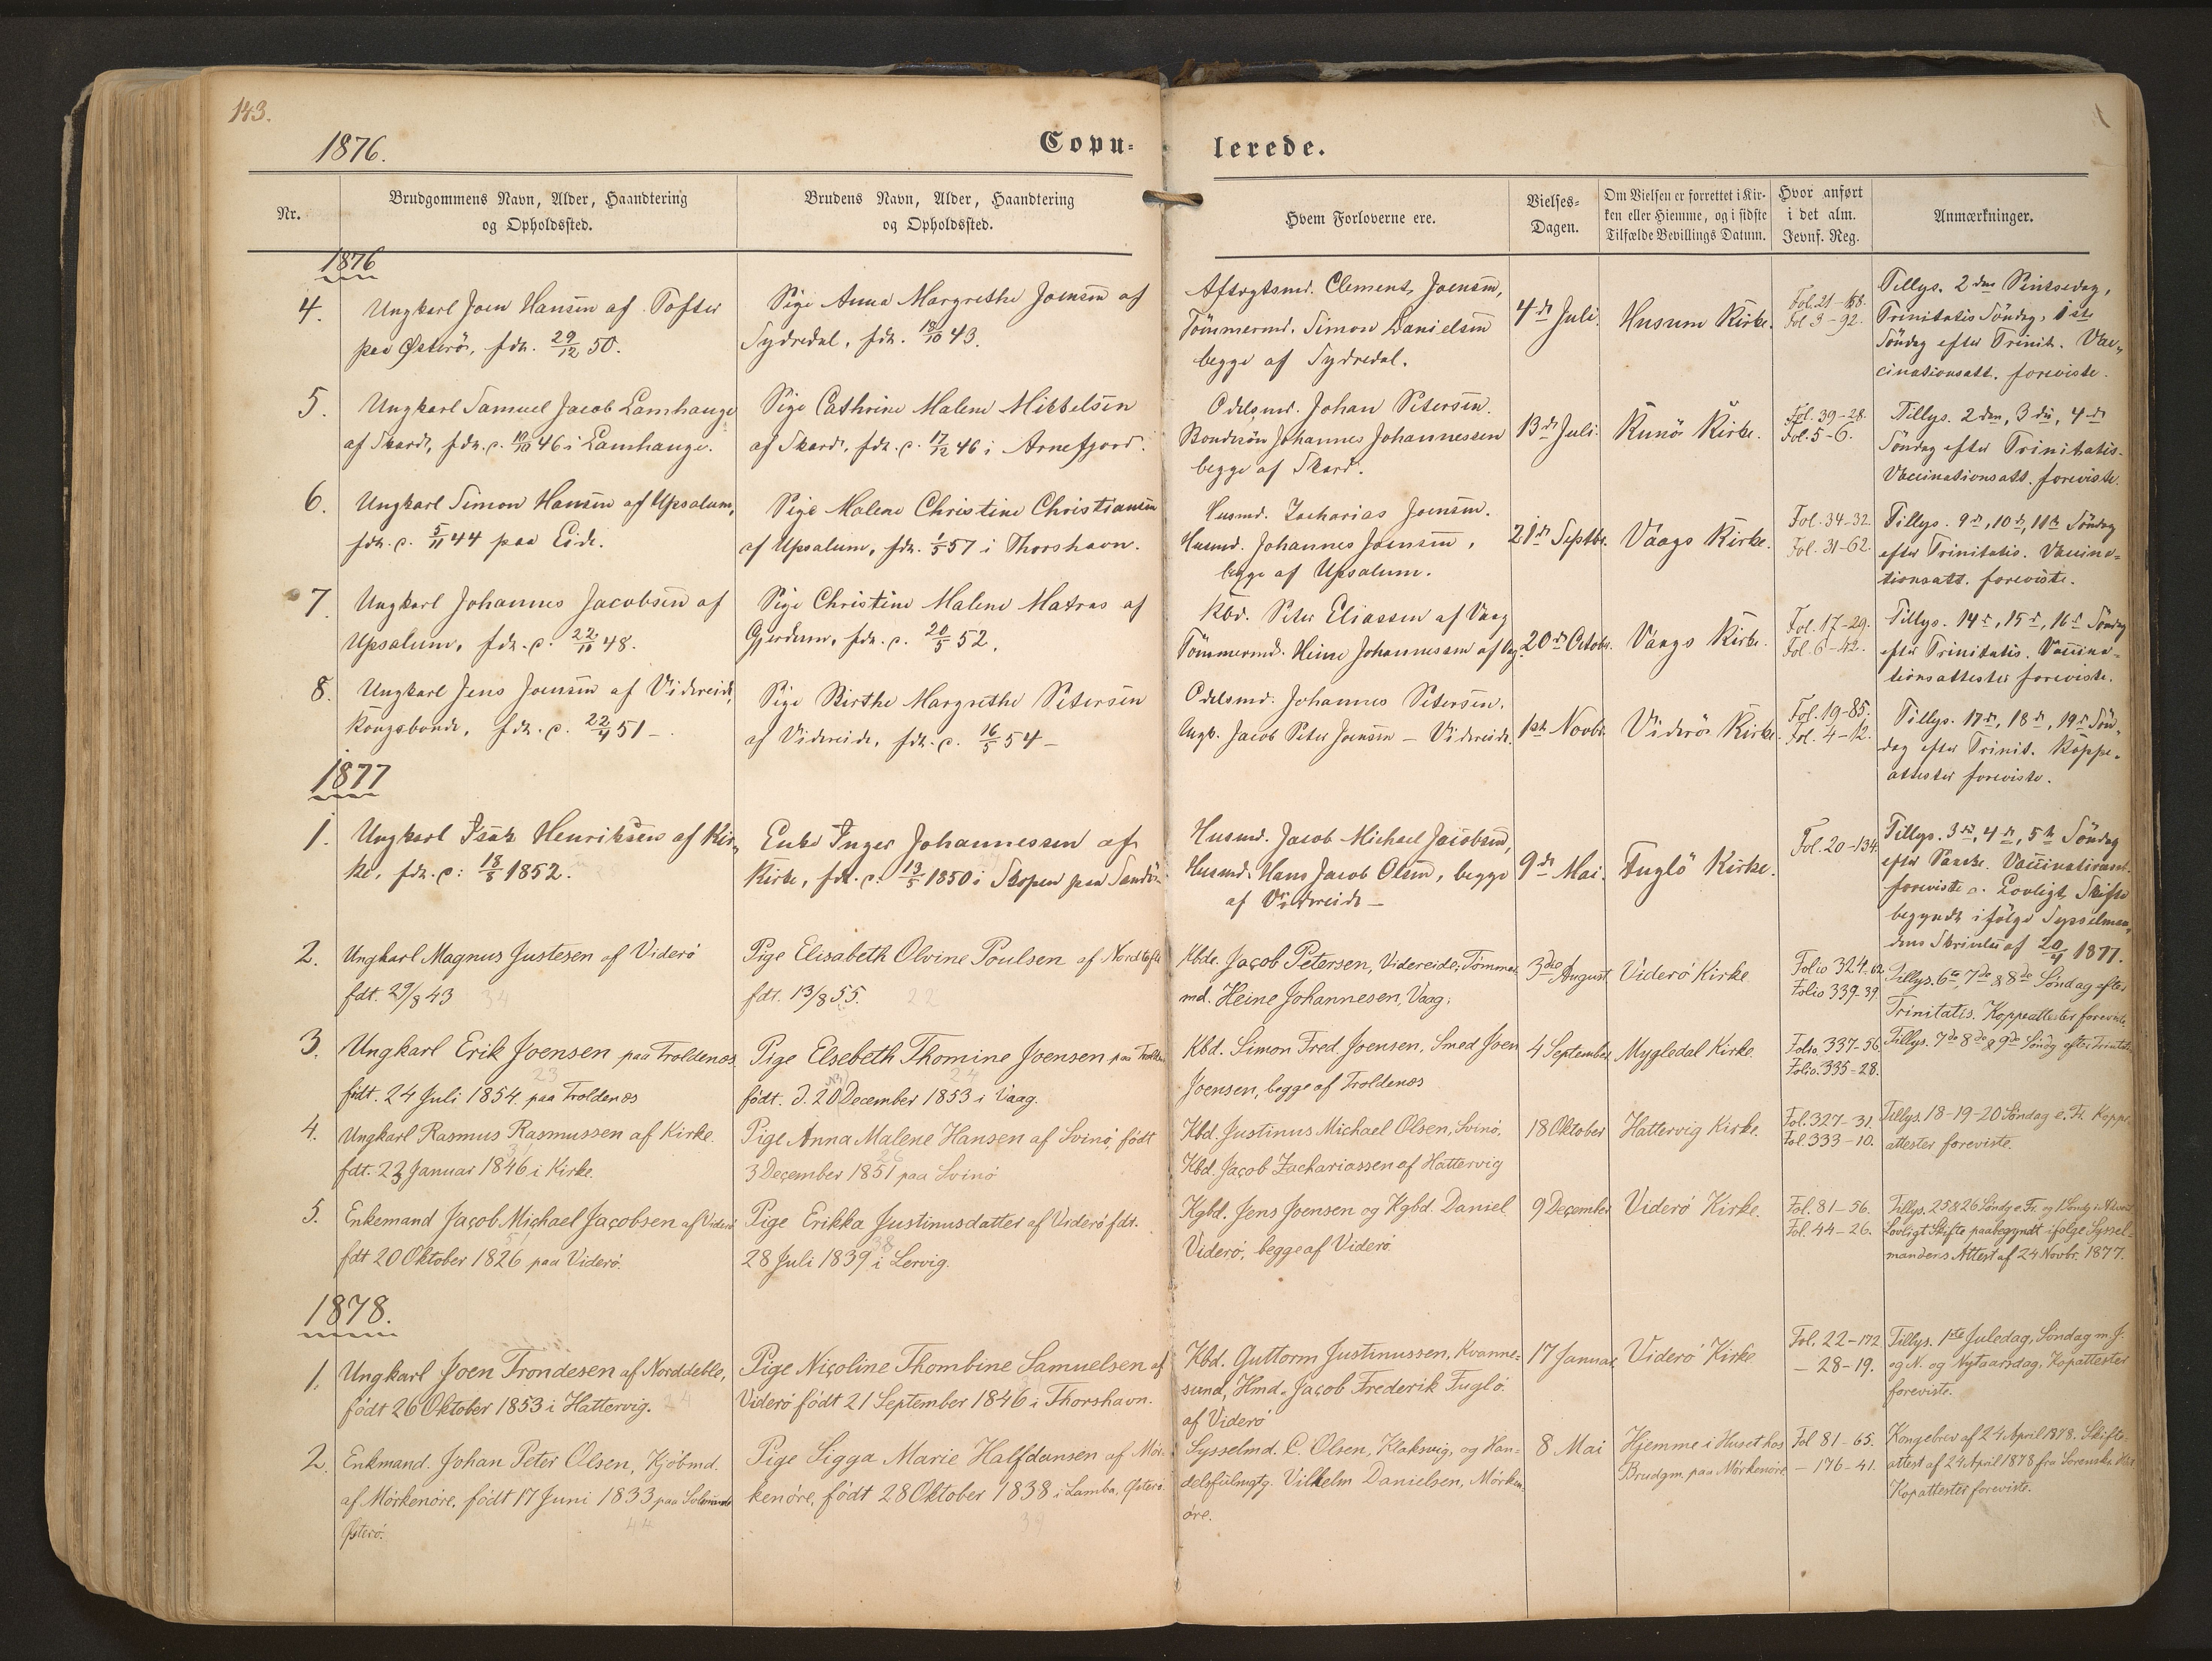 143.
1876.
Copu-
lerede.
Nr.
Brudgommens Navn, Alder, Haandtering
og Opholdssted.
Brudens Navn, Alder, Haandtering
og Opholdssted.
Hvem Forloverne ere.
Vielses-
Dagen.
Om Vielsen er forrettet i Kir-
ken eller Hjemme, og i sidste
Tilfælde Bevillings Datum.
Hvor anført
i det alm.
Jevnf. Reg.
Anmærkninger.
1876
4.
Ungkarl Joen Hansen af Tofter
paa Østerö, fdt. 29/12 50.
Pige Anna Margrethe Joensen af
Sydredal, fdt. 18/10 43.
Aftægtsmd. Clement Joensen,
Tömmermd. Simon Danielsen
begge af Sydredal.
4de Juli.
Husum Kirke.
Fol. 21-
Fol 3-92.
Tillys. 2den Pintsedag,
Trinitatis Söndag, 1ste
Söndag efter Trinit. Vac-
cinationsatt. foreviste.
5.
Ungkarl Samuel Jacob Lamhauge
af Skard, fdt. c. 10/10 46 i Lamhauge.
Pige Cathrine Malene Mikkelsen
af Skard, fdt. c. 17/12 46 i Arnefjord.
Odelsmd. Johan Petersen.
Bondesön Johannes Johannessen
begge af Skard.
13de Juli.
Kunö Kirke.
Fol. 39-28.
Fol. 5-6.
Tillys. 2den, 3die, 4de
Söndag efter Trinitatis.
Vaccinationsatt. foreviste.
6.
Ungkarl Simon Hansen af Upsalum,
fdt. c. 5/11 44 paa Eide.
Pige Malene Christine Christiansen
af Upsalum, fdt. 1/5 57 i Thorshavn.
Husmd. Zacharias Joensen.
Husmd. Johannes Joensen,
begge af Upsalum.
21de Septbr.
Vaags Kirke.
Fol. 34-32.
Fol. 31-62.
Tillys. 9de, 10de, 11te Söndag
efter Trinitatis. Vaccina-
tionsatt. foreviste.
7.
Ungkarl Johannes Jacobsen af
Upsalum, fdt. c. 22/10 48.
Pige Christine Malene Matras af
Gjerdum, fdt. c. 20/5 52.
Kbd. Peter Eliassen af Vaag
Tömmermd. Heine Johannessen af Vag
20de Octobr.
Vaags Kirke.
Fol. 17-29.
Fol. 6-42.
Tillys. 14de, 15de, 16de Söndag
efter Trinitatis. Vaccina-
tionsattester foreviste.
8.
Ungkarl Jens Joensen af Videreide,
Kongsbonde, fdt. c. 22/4 51-
Pige Birthe Margrethe Petersen
af Videreide, fdt. c. 16/5 54-
Odelsmd. Johannes Petersen.
Ungk. Jacob Peter Joensen - Videreide.
1ste Novbr.
Viderö Kirke.
Fol. 19-85.
Fol. 4-12.
Tillys. 17de, 18de, 19de Sön-
dag efter Trinit. Koppe-
attester foreviste.
1877
1.
Ungkarl Isak Henriksen af Kir-
ke, fdt. c: 18/8 1852.
Enke Inger Johannessen af
Kirke, fdt. c. 13/5 1850 i Skopen paa Sandö.
Husmd. Jacob Michael Jacobsen,
Husmd. Hans Jacob Olsen, begge
af Videreide -
9de Mai.
Fuglö Kirke.
Fol. 20-134.
Tillys. 3die, 4de, 5te Söndag
efter Paaske. Vaccinationsatt.
foreviste. Lovligt Skifte
begyndt ifölge Sysselman-
dens Skrivelse af 20/4 1877.
2.
Ungkarl Magnus Justesen af Viderö
fdt. 29/8 43
34
Pige Elisabeth Olvine Poulsen af Nordtofte
fdt. 13/8 55.
22
Kbde. Jacob Petersen, Videreide; Tömmer-
md. Heine Johannesen, Vaag.
3die August
Viderö Kirke
Folio 324-62
Folio 339-39
Tillys. 6te, 7de & 8de Söndag efter
Trinitatis. Koppeattester foreviste.
3.
Ungkarl Erik Joensen paa Troldenæs
23
födt. 24 Juli 1854 paa Troldenæs
Pige Elsebeth Thomine Joensen paa Troldenæs
24
födt. d. 20 December 1853 i Vaag.
Kbd. Simon Fred. Joensen, Smed Joen
Joensen, begge af Troldenæs
4 September
Mygledal Kirke.
Folio. 337-56.
Folio. 335-28.
Tillys. 7de 8de & 9de Söndg efter Trinitatis
4.
Ungkarl Rasmus Rasmussen af Kirke.
31
fdt. 23 Januar 1846 i Kirke.
Pige Anna Malene Hansen af Svinö, födt
26
3 December 1851 paa Svinö
Kbd. Justinus Michael Olsen, Svinö.
Kbd. Jacob Zachariassen af Hattervig
18 Oktober
Hattervig Kirke.
Fol. 327-31.
Fol. 333-10.
Tillys. 18-19-20 Söndag e. Tr. Koppe-
attester foreviste.
5.
Enkemand Jacob Michael Jacobsen af Viderö
51
fdt 20 Oktober 1826 paa Viderö.
Pige Erikka Justinusdatter af Viderö fdt.
38
28 Juli 1839 i Lervig.
Kgbd. Jens Joensen og Kgbd. Daniel
Viderö, begge af Viderö.
9 December
Viderö Kirke.
Fol. 81-56.
Fol. 44-26.
Tillys. 25 & 26 Söndg e. Tr. og 1 Söndg i Advent
Lovligt Skifte paabegyndt ifölge Syssel-
manders Attest af 24 Novbr. 1877.
1878.
1.
Ungkarl Joen Trondesen af Norddeble,
födt 26 Oktober 1853 i Hattervig.
24
Pige Nicoline Thombine Samuelsen af
Viderö födt 21 September 1846 i Thorshavn.
Kbd. Guttorm Justinussen, Kvanne-
sund, Hmd. Jacob Frederik Fuglö.
af Viderö
17 Januar
Viderö Kirke
Fol. 22-172
- 28-19.
Tillys. 1ste Juledag, Söndag m. J.
og N. og Nytaarsdag, Kopattester
foreviste.
2.
Enkmand. Johan Peter Olsen, Kjöbmd.
af Mörkenöre, födt 17 Juni 1833 paa
44
Østerö.
Pige Sigga Marie Halfdansen af Mör-
kenöre, födt 28 Oktober 1838 i Lamba, Østerö.
39
Sysselmd. C. Olsen, Klaksvig, og Han-
delsfuldmgtg. Vilhelm Danielsen, Mörken-
öre.
8 Mai
Hjemme i Huset hos
Brudgm. paa Mörkenöre
Fol 81-65.
- 176-41.
Kongebrev af 24 April 1878. Skifte-
attest af 24 April 1878 fra Sorensk.
Kopattester foreviste.